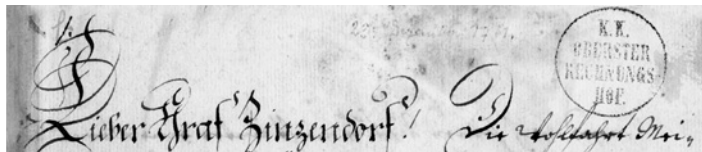 K.K.
OBERSTER
RECHNUNGS-
HOF.
Lieber Graf Zinzendorf! Die Wohlfahrt Mei-